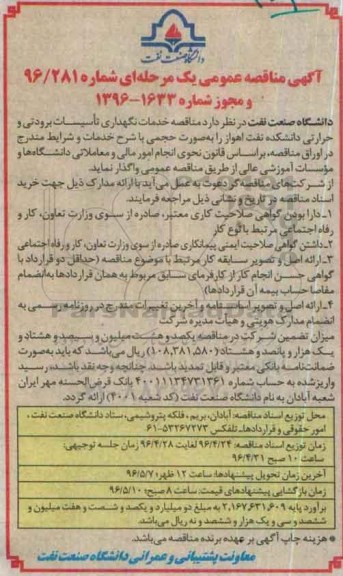 دانشگاه صنعت نفت
آگهی مناقصه عمومی یک مرحله‌ای شماره ۹۶/۲۸۱
و مجوز شماره ۱۶۳۳-۱۳۹۶
دانشگاه صنعت نفت در نظر دارد مناقصه خدمات نگهداری تأسیسات برودتی و
حرارتی دانشکده نفت اهواز را به‌صورت حجمی با شرح خدمات و شرایط مندرج
در اوراق مناقصه، براساس قانون نحوی انجام امور مالی و معاملاتی دانشگاه‌ها و
مؤسسات آموزشی عالی از طریق مناقصه عمومی واگذار نماید.
از شرکت‌های مناقصه‌گر دعوت به عمل می‌آید با ارائه مدارک ذیل جهت خرید
اسناد مناقصه در تاریخ و نشانی ذیل مراجعه فرمایند.
۱ـ دارا بودن گواهی صلاحیت کاری معتبر، صادره از سوی وزارت تعاون، کار و
رفاه اجتماعی مرتبط با نوع کار
۲ـ داشتن گواهی صلاحیت ایمنی پیمانکاری صادره از سوی وزارت تعاون، کار و رفاه اجتماعی
۳ـ ارائه اصل و تصویر سابقه کار مرتبط با موضوع مناقصه (حداقل دو قرارداد با
گواهی حسن انجام کار از کارفرمای سابق مربوط به همان قراردادها به‌انضمام
مفاصا حساب بیمه آن قراردادها)
۴ـ ارائه اصل و تصویر اساسنامه و آخرین تغییرات مندرج در روزنامه رسمی به
انضمام مدارک هویتی و هیأت مدیره شرکت
میزان تضمین شرکت در مناقصه یکصد و هشت میلیون و سیصد و هشتاد و
یک هزار و پانصد و هشتاد (۱۰۸,۳۸۱,۵۸۰) ریال می‌باشد که باید به‌صورت
ضمانت‌نامه بانکی معتبر و قابل تمدید باشد. چنانچه وجه نقد باشد، رسید
واریز شده به حساب شماره ۴۰۰۱۱۱۳۴۷۳۱۳۶۱ بانک قرض‌الحسنه مهر ایران
شعبه آبادان به نام دانشگاه صنعت نفت (کد شعبه ۴۰۰۱) ارائه گردد.
محل توزیع اسناد مناقصه: آبادان، بریم، فلکه پتروشیمی، ستاد دانشگاه صنعت نفت،
امور حقوقی و قراردادها ـ تلفکس ۵۳۲۶۷۲۷۳-۰۶۱
زمان توزیع اسناد مناقصه: ۹۶/۴/۲۴ لغایت ۹۶/۴/۲۸ زمان جلسه توجیهی:
ساعت ۱۰ صبح ۹۶/۴/۳۱
آخرین زمان تحویل پیشنهادها: ساعت ۱۲ ظهر ۹۶/۵/۷
زمان بازگشایی پیشنهادهای قیمت: ساعت ۸ صبح ۹۶/۵/۱۰
برآورد پایه ۲,۱۶۷,۶۳۱,۶۰۹ به مبلغ دو میلیارد و یکصد و شصت و هفت میلیون و
ششصد و سی و یک هزار و ششصد و نه ریال می‌باشد.
* هزینه چاپ آگهی بر عهده برنده مناقصه می‌باشد.
معاونت پشتیبانی و عمرانی دانشگاه صنعت نفت